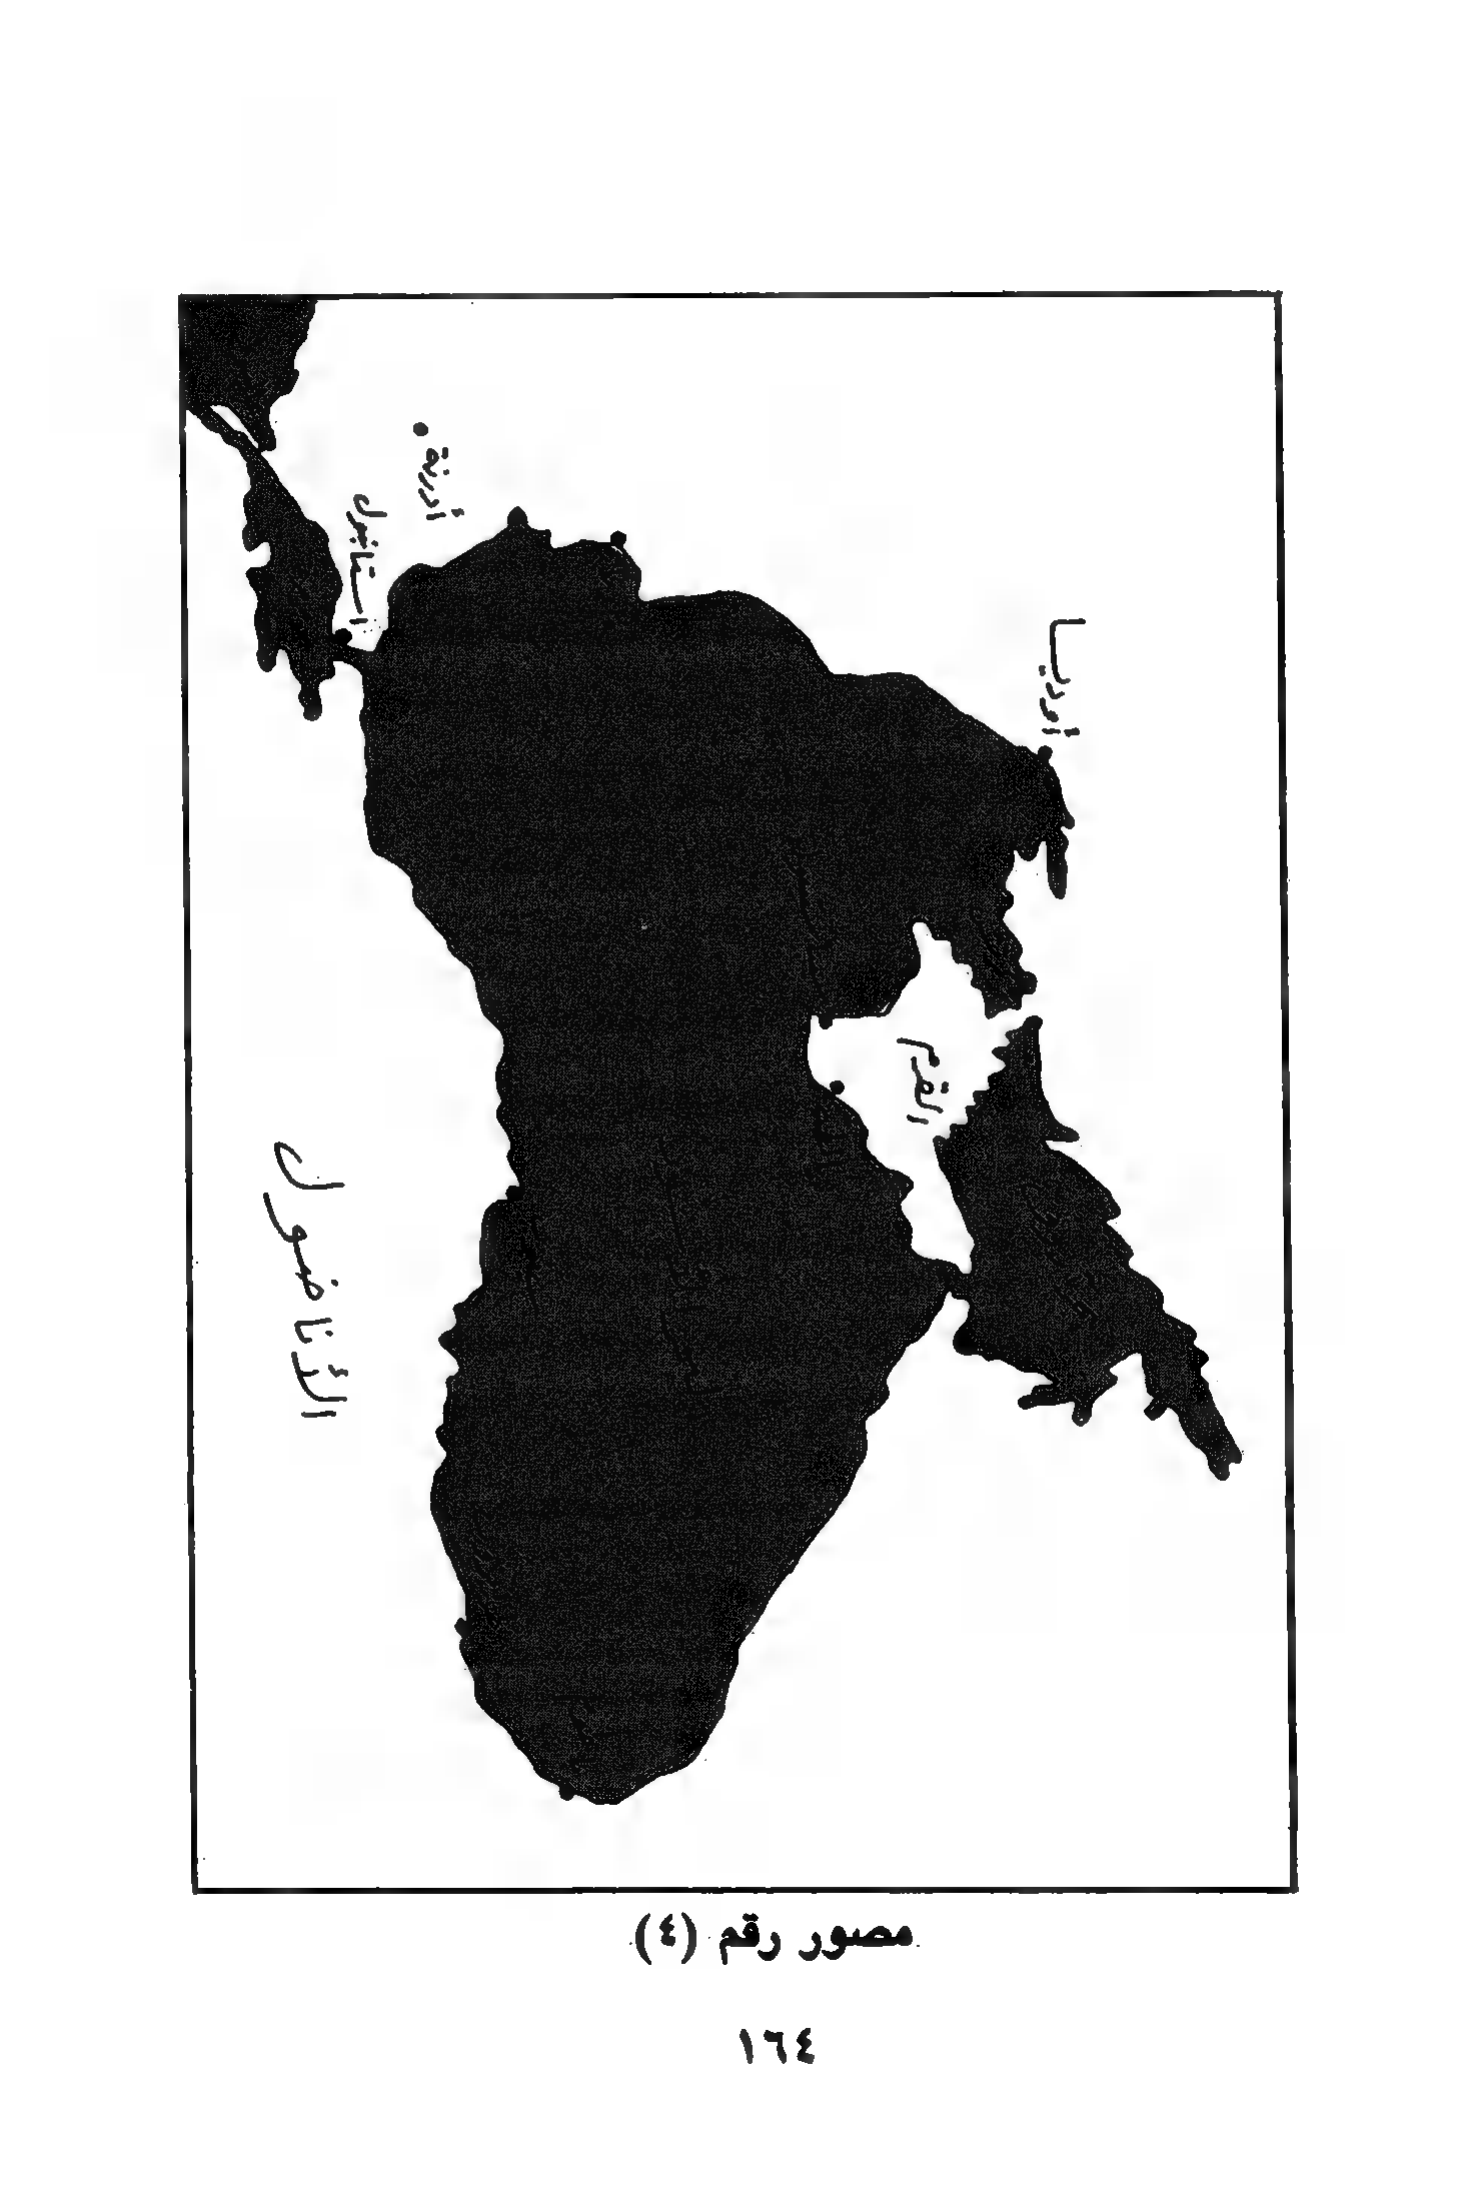 أدرنة
استانبول
أوديسا
القرم
الأناضول
مصور رقم (٤)
١٦٤